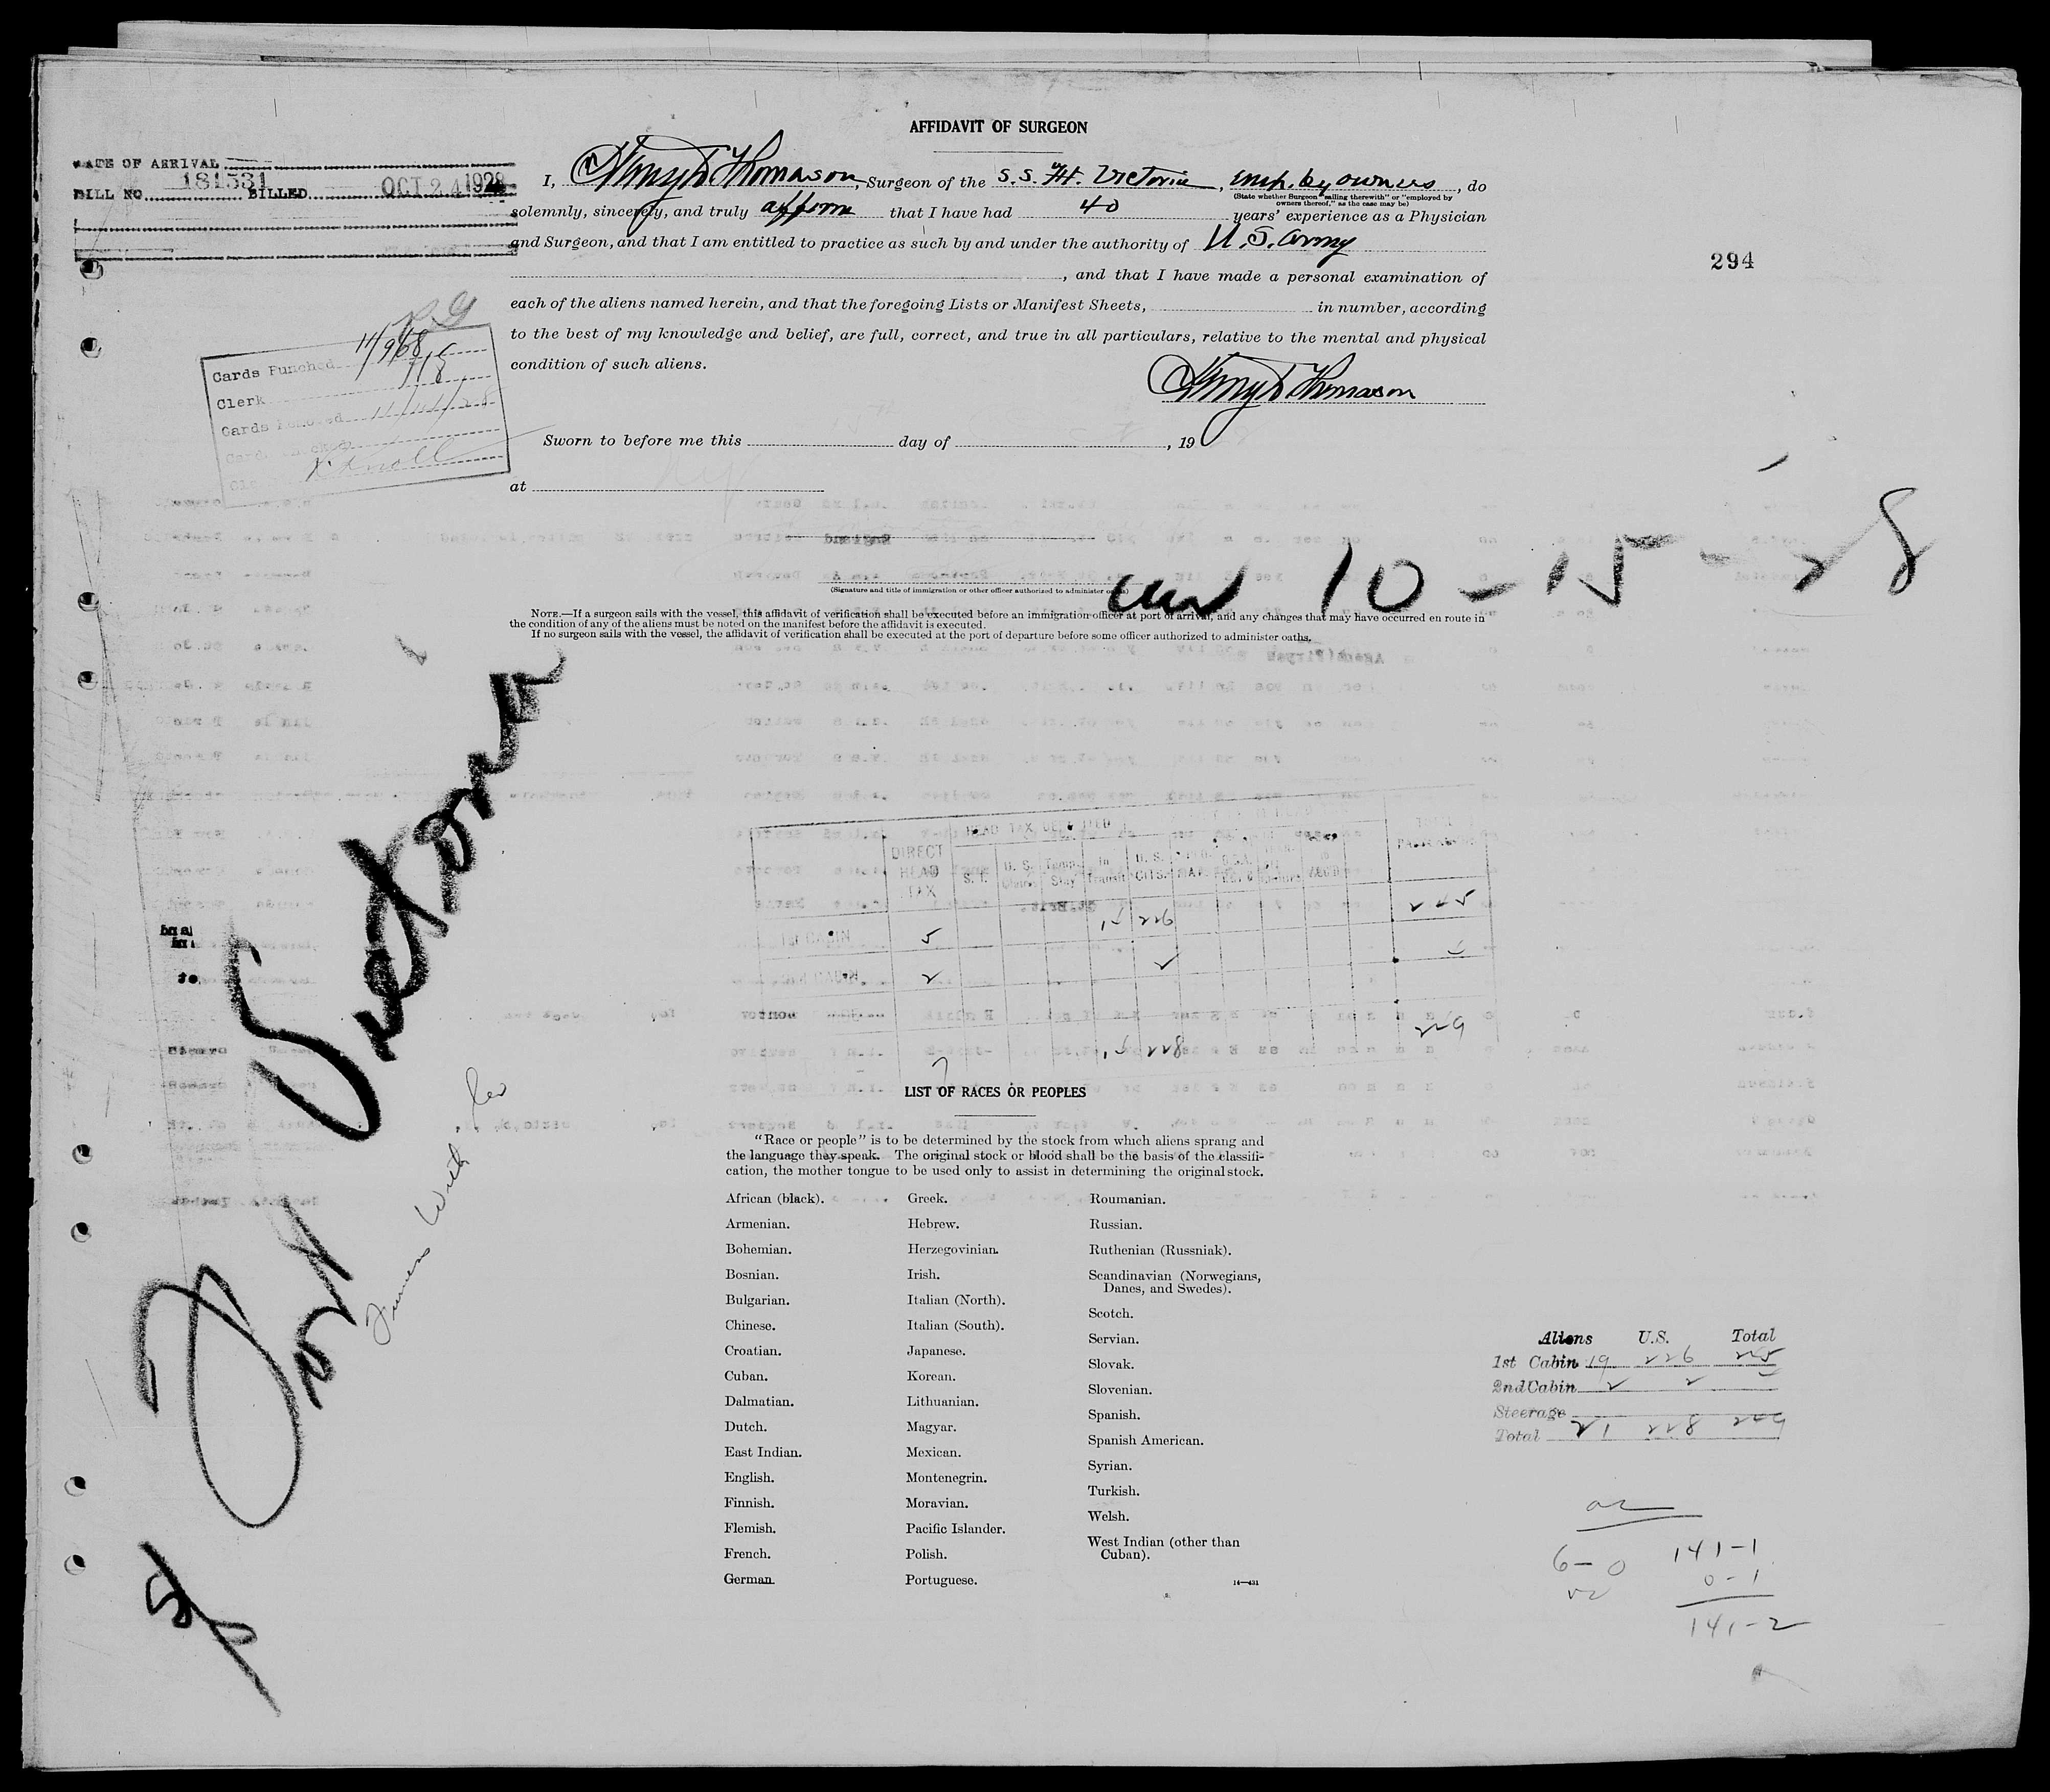 AFFIDAVIT OF SURGEON
DATE OF ARRIVAL
BILL NO. 181531 BILLED OCT 24 1928
I, Henry D Thomason, Surgeon of the S.S. Ft. Victoria, emp. by owners, do
(State whether Surgeon "sailing therewith" or "employed by
owners thereof," as the case may be)
solemnly, sincerely, and truly affirm that I have had 40 years' experience as a Physician
and Surgeon, and that I am entitled to practice as such by and under the authority of U.S. Army
, and that I have made a personal examination of
294
each of the aliens named herein, and that the foregoing Lists or Manifest Sheets, in number, according
to the best of my knowledge and belief, are full, correct, and true in all particulars, relative to the mental and physical
condition of such aliens.
Henry D Thomason
Cards Punched
Clerk
Cards Removed
Sworn to before me this day of , 19
at
(Signature and title of immigration or other officer authorized to administer oaths)
10-15-28
NOTE.—If a surgeon sails with the vessel, this affidavit of verification shall be executed before an immigration officer at port of arrival, and any changes that may have occurred en route in
the condition of any of the aliens must be noted on the manifest before the affidavit is executed.
If no surgeon sails with the vessel, the affidavit of verification shall be executed at the port of departure before some officer authorized to administer oaths.
Fort Victoria
HEAD TAX
DIRECT HEAD TAX
S. T.
U. S.
Stay
In Transit
U. S. CITS.
1st CABIN 5 15 226 245
CABIN 2 2
7 15 228 249
LIST OF RACES OR PEOPLES
"Race or people" is to be determined by the stock from which aliens sprang and
the language they speak. The original stock or blood shall be the basis of the classifi-
cation, the mother tongue to be used only to assist in determining the original stock.
African (black).
Armenian.
Bohemian.
Bosnian.
Bulgarian.
Chinese.
Croatian.
Cuban.
Dalmatian.
Dutch.
East Indian.
English.
Finnish.
Flemish.
French.
German.
Greek.
Hebrew.
Herzegovinian.
Irish.
Italian (North).
Italian (South).
Japanese.
Korean.
Lithuanian.
Magyar.
Mexican.
Montenegrin.
Moravian.
Pacific Islander.
Polish.
Portuguese.
Roumanian.
Russian.
Ruthenian (Russniak).
Scandinavian (Norwegians,
Danes, and Swedes).
Scotch.
Servian.
Slovak.
Slovenian.
Spanish.
Spanish American.
Syrian.
Turkish.
Welsh.
West Indian (other than
Cuban).
14—431
Aliens U.S. Total
1st Cabin 19 226 245
2nd Cabin 2 2
Steerage
Total 21 228 249
6-0
141-1
0-1
141-2